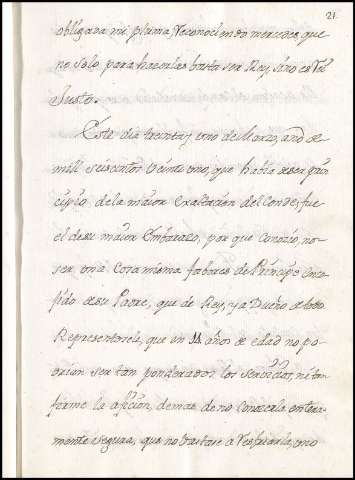 21.
obligara mi pluma, reconociendo mercedes, que
no solo para hacerlas basta ser Rey, sino es
Justo.
Este dia treinta y uno de Marzo, año de
mill seiscientos veinte uno, que habia de ser prin
cipio de la maior exaltacion del Conde, fue
el de su maior Embarazo, por que conocio, no
ser una cosa misma fabores de Principe
de su Padre, que de Rey, ya Dueño de todo.
que en 11 años de edad no po
drian ser tan ponderados los servicios, ni tan
forme la aficion, demas de no conocerle entera
mente segura, que no bastase a resfriarla, uno